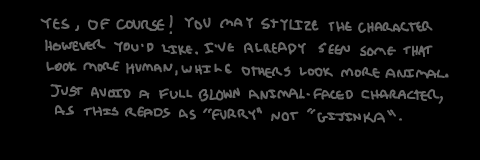 YES, OF COURSE! YOU MAY STYLIZE THE CHARACTER
HOWEVER YOU'D LIKE. I'VE ALREADY SEEN SOME THAT
LOOK MORE HUMAN, WHILE OTHERS LOOK MORE ANIMAL.
JUST AVOID A FULL BLOWN ANIMAL-FACED CHARACTER,
AS THIS READS AS "FURRY" NOT "GIJINKA".